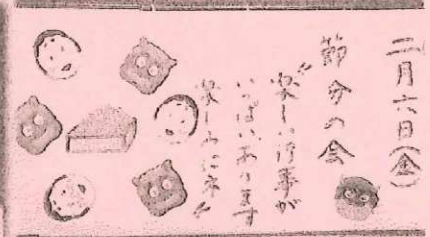 二月六日(金)
節分の会
楽しい行事が
いっぱいあります
楽しみにネ